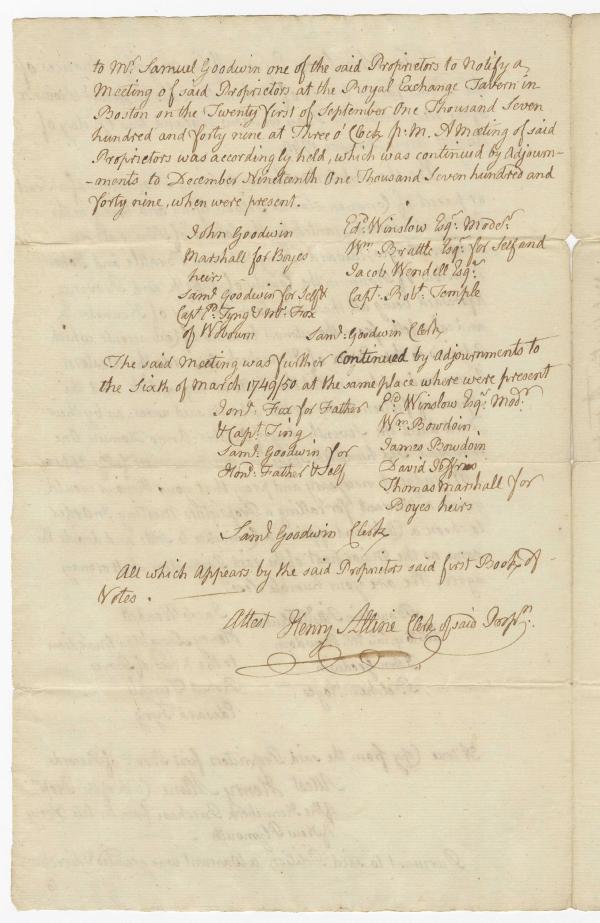 to Mr. Samuel Goodwin one of the said Proprietors to Notify a
Meeting of said Proprietors at the Royal Exchange Tavern in
Boston on the Twenty first of September One Thousand Seven
hundred and forty nine at Three o'Clock p:M. A Meeting of said
Proprietors was accordingly held, which was continued by Adjourn-
-ments to December Nineteenth One Thousand Seven hundred and
forty nine, when were present.
John Goodwin
Marshall for Boyes
heirs
Saml. Goodwin for Self &
Capt. Tyng & Mr. Fox
of Wobourn
Edd. Winslow Esqr. Moder.
Wm. Brattle Esqr. for Self and
Jacob Wendell Esqr.
Capt. Robt. Temple
Saml. Goodwin Clerk
The said Meeting was further Continued by Adjournments to
the Sixth of March 1749/50 at the same place where were present
Jond. Fox for Father
& Capt. Ting
Saml. Goodwin for
Hond. Father & Self
Ed. Winslow Esqr. Modr.
Wm. Bowdoin
James Bowdoin
David Jeffries
Thomas Marshall for
Boyes heirs
Saml. Goodwin Clerk
All which Appears by the said Proprietors said first Book of
Votes.
Attest Henry Alline Clerk of said Proprs.